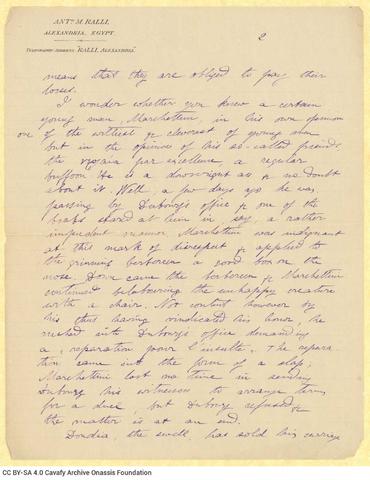 ANTN. M. RALLI.
ALEXANDRIA, EGYPT.
TELEGRAPHIC ADDRESS: "RALLI, ALEXANDRIA."
2
means that they are obliged to pay their
losses.
I wonder whether you knew a certain
young man, Marchettini, in his own opinion
one of the wittiest & cleverest of young men
but in the opinion of his so-called friends,
the par excellence, a regular
buffoon. He is a downright ass & no doubt
about it. Well, a few days ago he was
passing by Dubourg's office & one of the
stared at him in, say, a rather
impudent manner. Marchettini was indignant
at this mark of disrespect & applied to
the grinning berbereen a good box on the
nose. Down came the berbereen & Marchettini
continued belabouring the unhappy creature
with a chair. Not content however by
his thus having vindicated his honor, he
rushed into Dubourg's office demanding
a "reparation pour l'insulte". The repara
tion came in the form of a slap;
Marchettini lost no time in sending
Dubourg his witnesses to arrange terms
for a duel, but Dubourg refused &
the matter is at an end.
the swell, has sold his carriage
CC BY-SA 4.0 Cavafy Archive Onassis Foundation